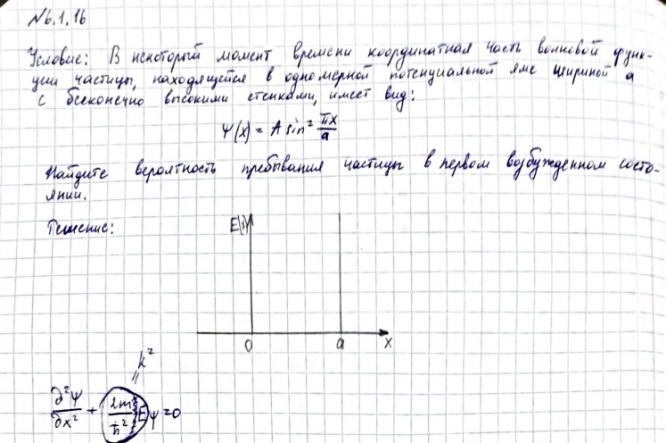 №6.1.16
Условие: В некоторый момент времени координатная часть волновой функ-
ции частицы, находящейся в одномерной потенциальной яме шириной a
с бесконечно высокими стенками, имеет вид:
Ψ(x) = A sin² πx/a
Найдите вероятность пребывания частицы в первом возбужденном состо-
янии.
Решение:
0 a x
k²
||
∂²Ψ/∂x² + 2m/ħ² E Ψ = 0